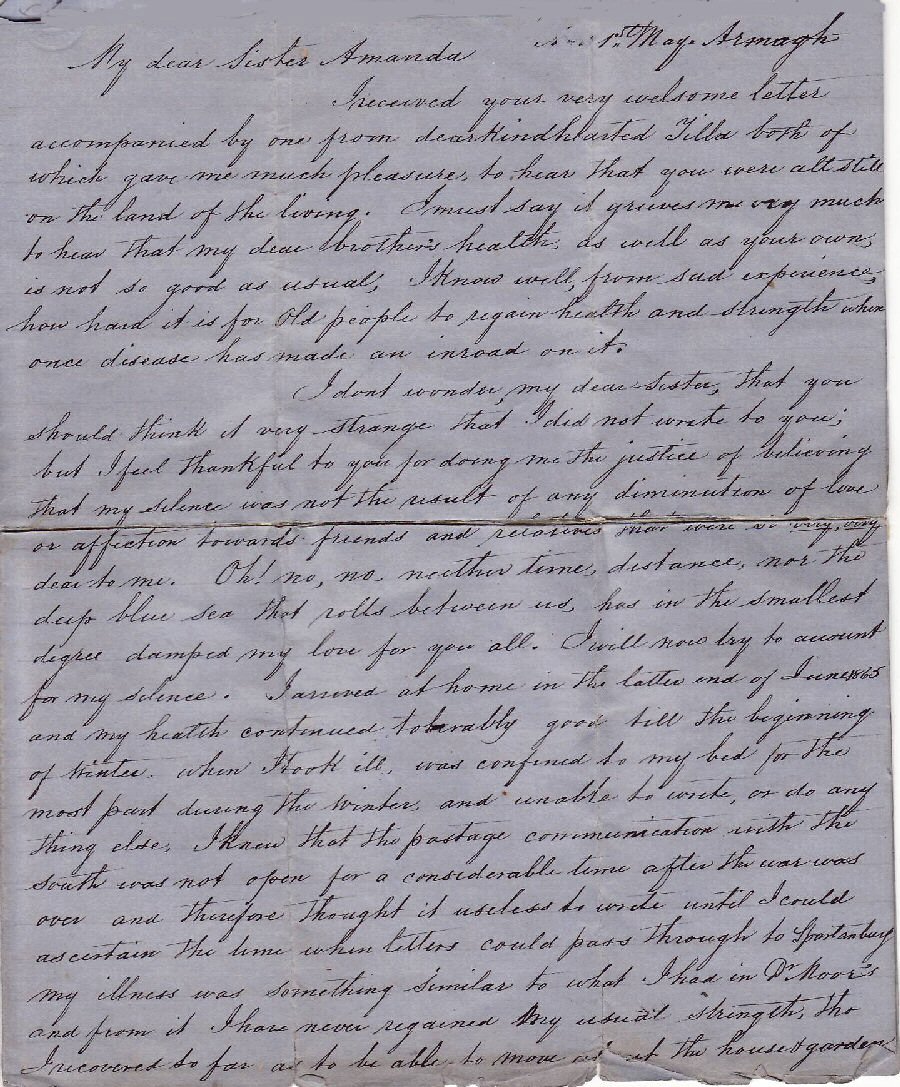 1st May. Armagh
My dear Sister Amanda
I received your very welsome letter
accompanied by one from dear Kindhearted Tilla both of
which gave me much pleasure, to hear that you were all still
on the land of the living. I must say it grieves me very much
to hear that my dear brother's health, as well as your own,
is not so good as usual, I know well, from sad experience,
how hard it is for Old people to regain health and strength when
once disease has made an inroad on it.
I dont wonder, my dear Sister, that you
should think it very strange that I did not write to you;
but I feel thankful to you for doing me the justice of believing
that my silence was not the result of any diminution of love
or affection towards friends and relatives that were so very, very
dear to me. Oh! no, no, neither time, distance, nor the
deep blue sea that rolls between us, has in the smallest
degree damped my love for you all. I will now try to account
for my silence. I arrived at home in the latter end of June 1865
and my health continued tolerably good till the beginning
of Winter. when I took ill, was confined to my bed for the
most part during the Winter, and unable to write, or do any
thing else, I knew that the postage communication with the
south was not open for a considerable time after the war was
over and therefore thought it useless to write until I could
ascertain the time when letters could pass through to Spartanburg
my illness was something similar to what I had in Dr Moor's
and from it I have never regained my usual strength, tho
I recovered so far as to be able to move about the house & garden